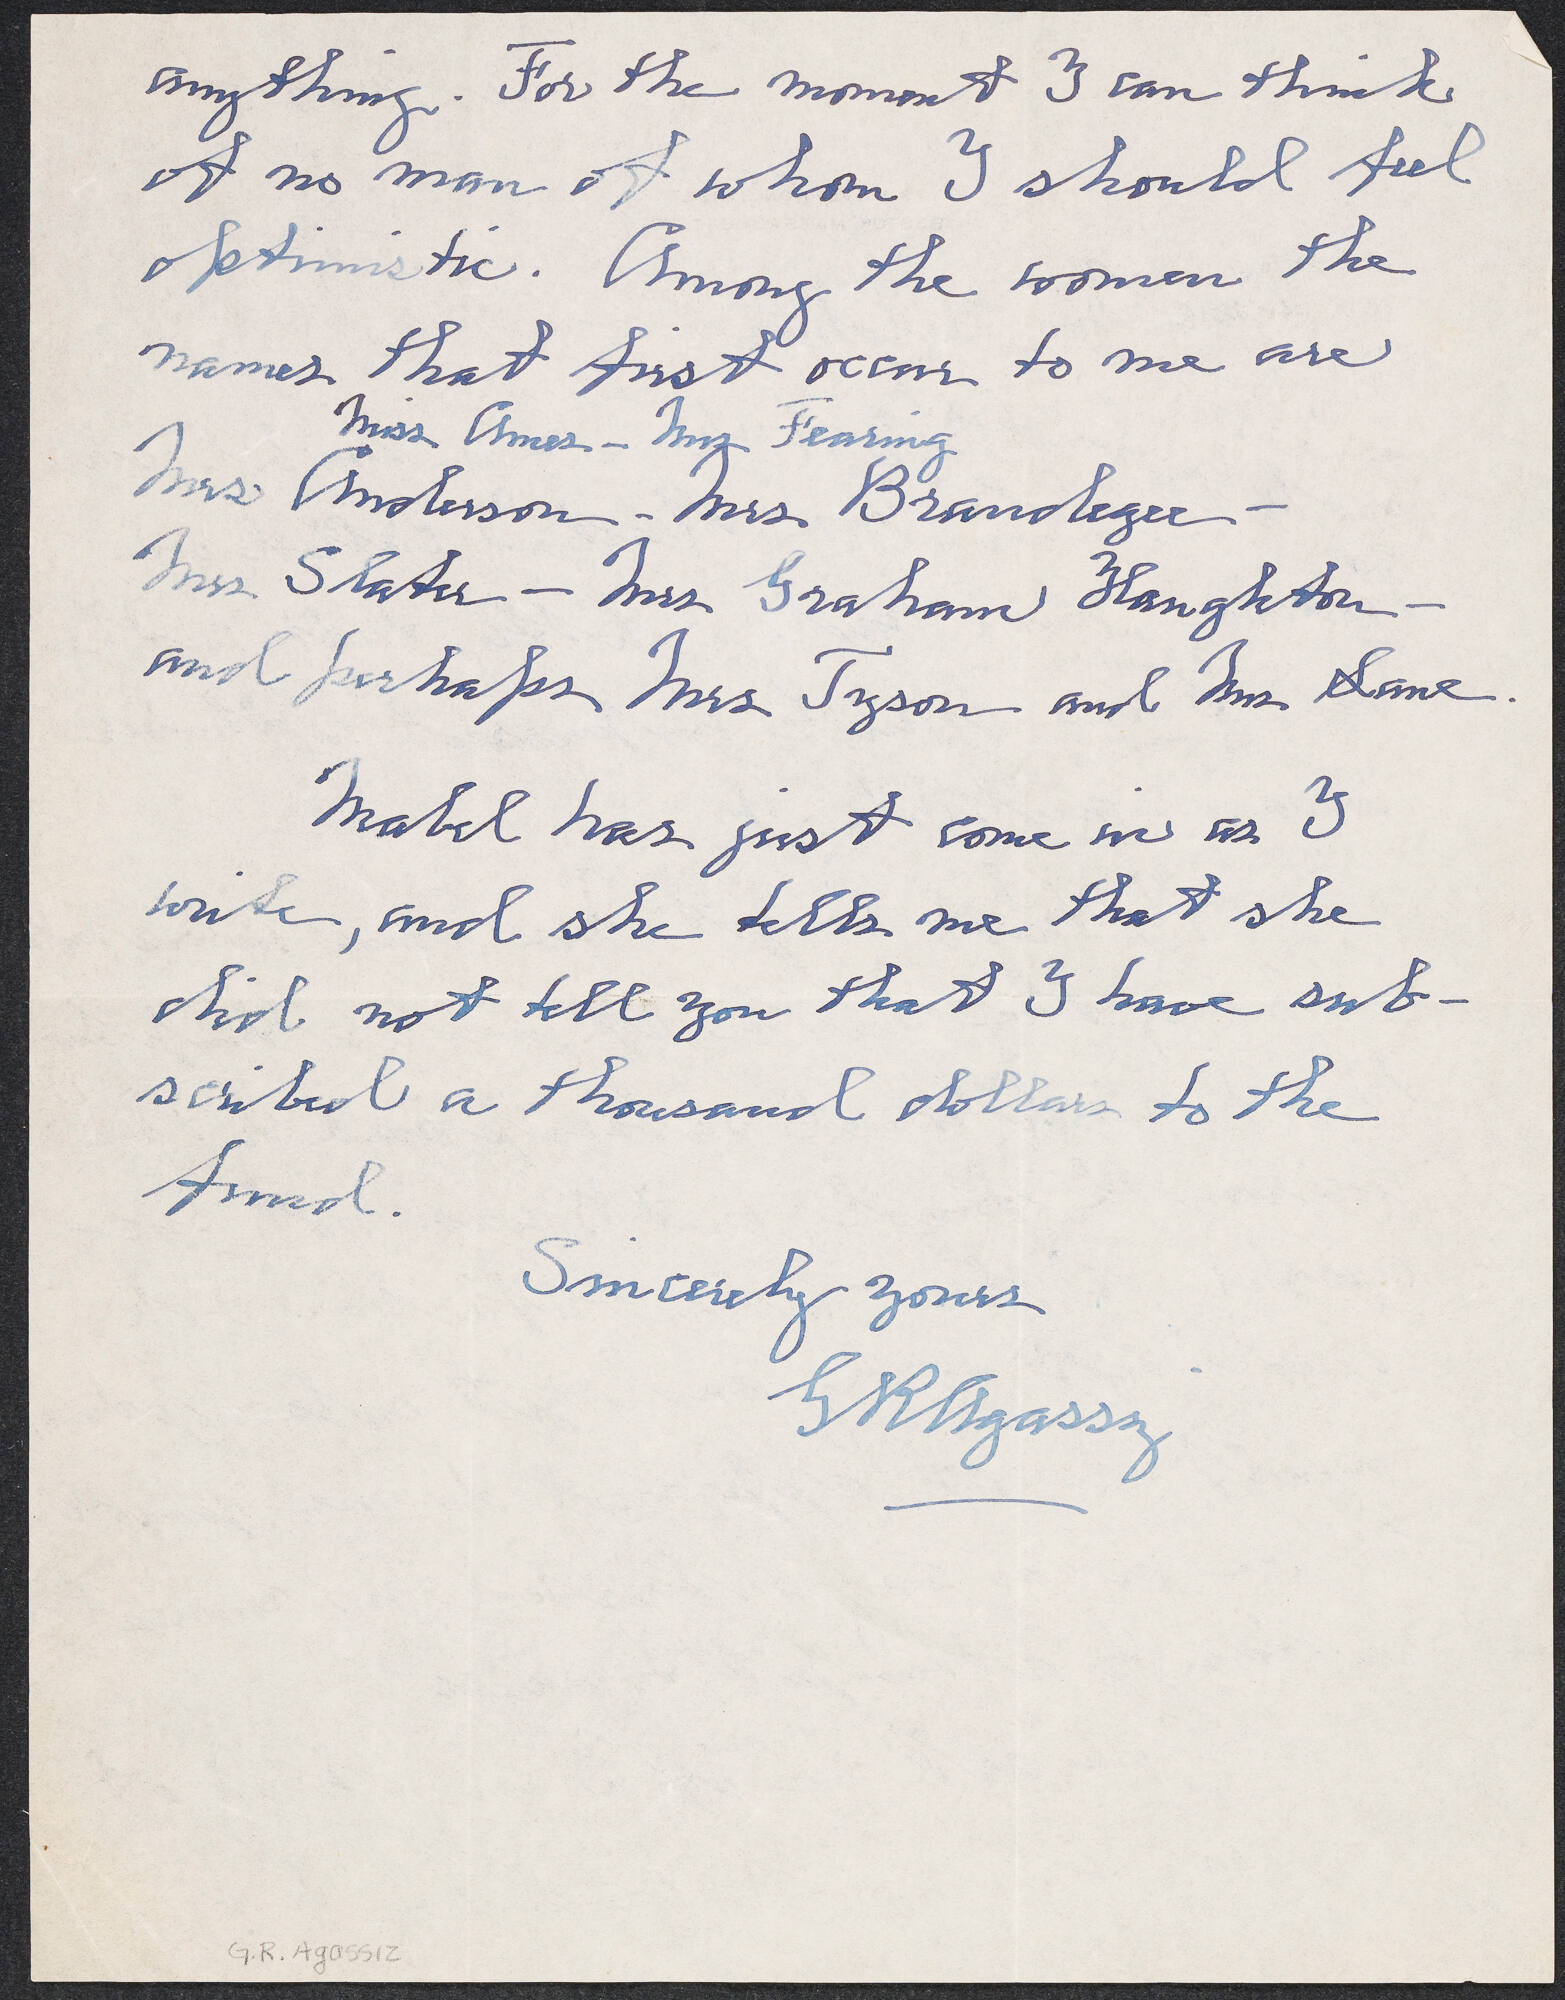 anything. For the moment I can think
of no man of whom I should feel
optimistic. Among the women the
names that first occur to me are
Miss Ames – Mrs Fearing
Mrs Anderson – Mrs Brandegee –
Mrs Slater – Mrs Graham Haughton –
and perhaps Mrs Tyson and Mrs Lane.
Mabel has just come in as I
write, and she tells me that she
did not tell you that I have sub-
scribed a thousand dollars to the
fund.
Sincerely yours
GRAgassiz
G.R. Agassiz